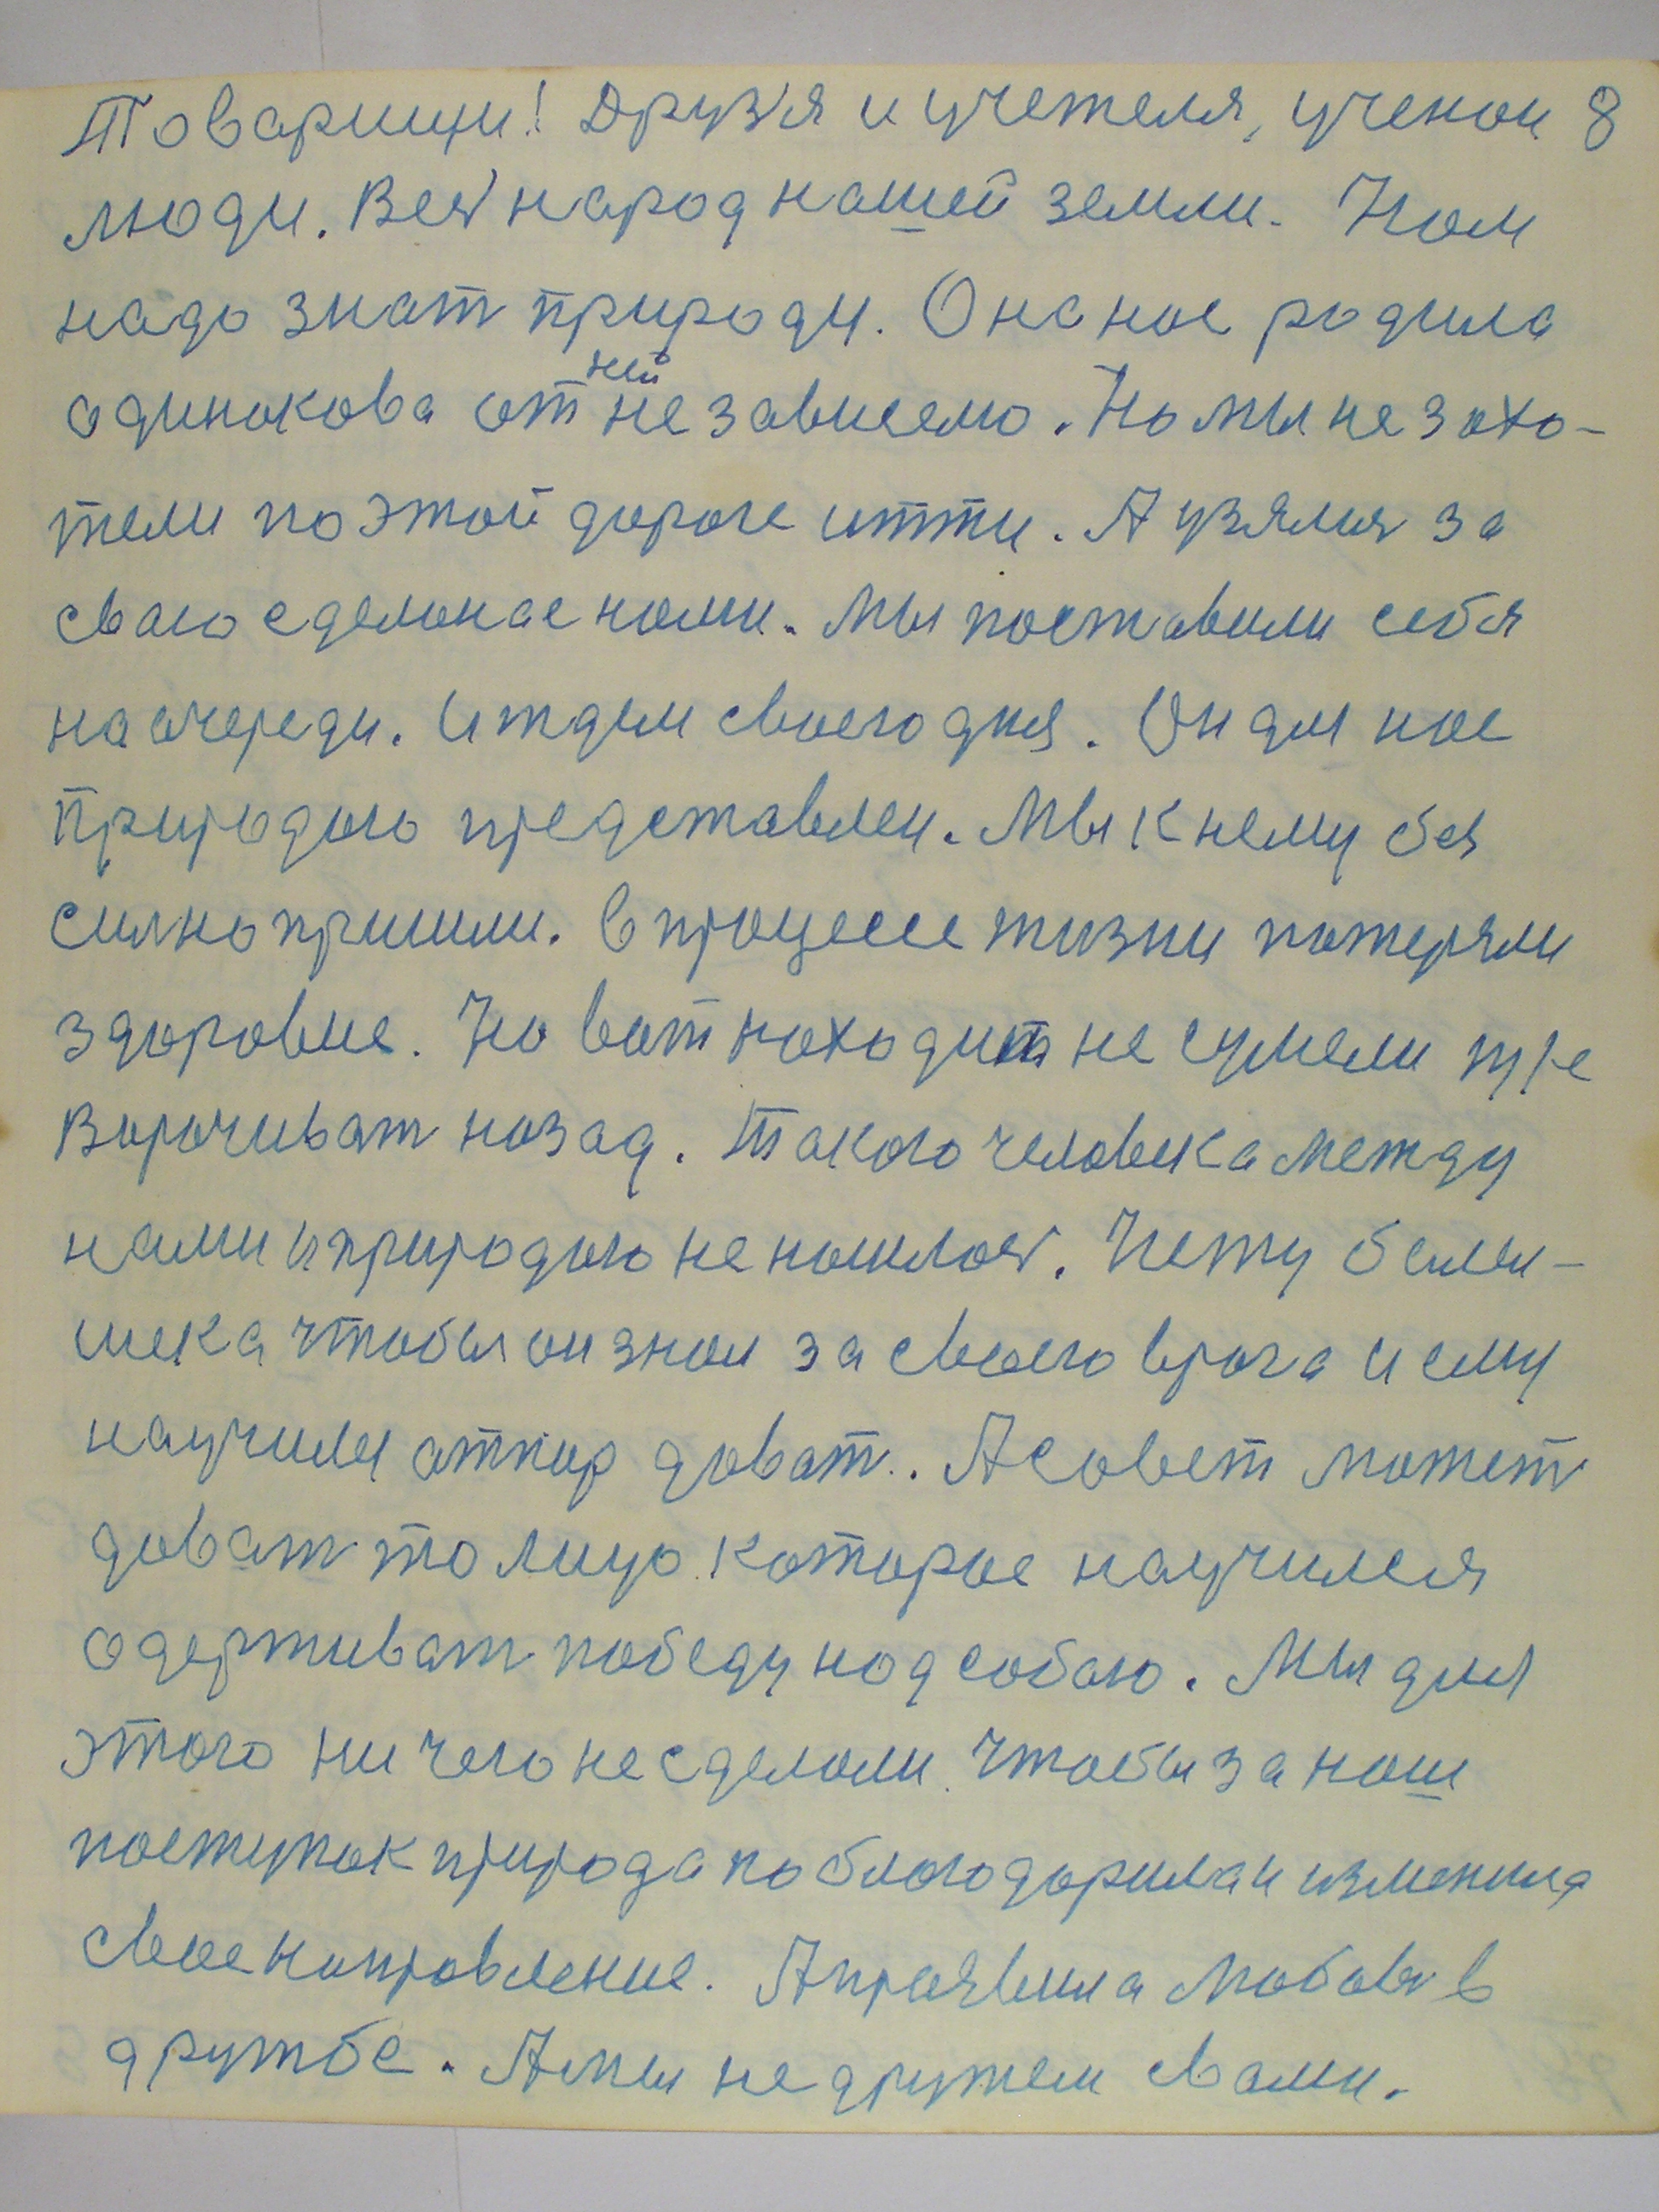 Товарищи! Друз'я и учетеля, ученои 8
люди. Вес народ нашей земли. Нам
надо знат природу. Она нас родила
одинокова от ней не зависемо. Но мы не захо-
тели по этой дороге итти. А узялис за
сваго сделонае нами. Мы поставили себя
на очереди. И ждем своего дня. Он для нас
Природою представлен. Мы к нему без
силно пришли. В процессе жизни потеряли
здоровие. Но вот находит не сумели пре
Ворочиват назад. Такого человека между
нами и природою не нашлос. Нету
чтобы он знал за своего врага и ему
научился атпор доват. А совет может
доват то лицо которое научился
одерживат победу над собою. Мы для
этого ни чего не сделали чтобы за наш
поступок природа поблогодорила и изменила
свое напровление. А праявила любов в
дружбе. А мы не дружем с вами.